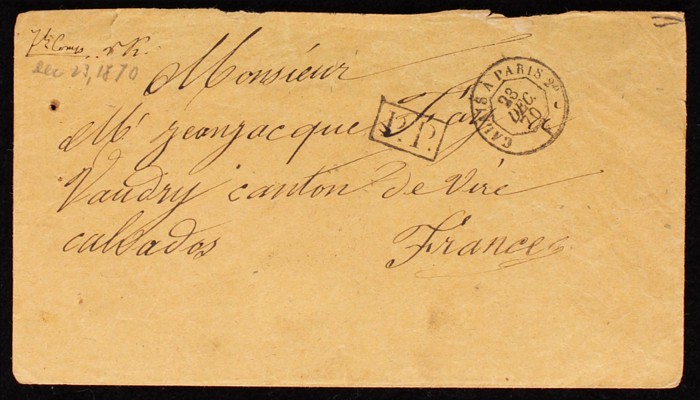 7th Comp
Dec 23, 1870
Monsieur
Mr jeanjacque
P.P.
CALAIS A PARIS 2º
23
DEC.
70
Vaudry canton de Vire
calvados France